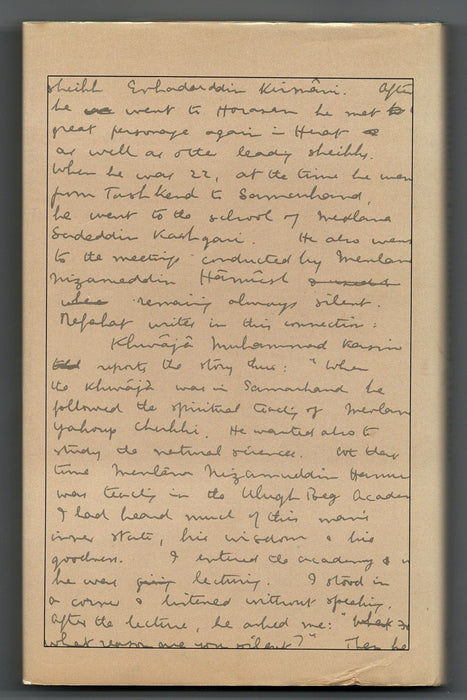 sheikh Evhadeddin Kirmâni. After
he went to Horasan he met
great personage again in Herat
as well as other leading sheikhs.
When he was 22, at the time he went
from Tashkend to Samarkand,
he went to the school of Mevlana
Sadeddin Kashgari. He also went
to the meetings conducted by Mevlan
Nizameddin Hâmûsh
remaining always silent.
Refahat writes in this connection:
Khwâjâ Muhammad Kasim
reports the story thus: "When
the Khwâjâ was in Samarkand he
followed the spiritual teaching of Mevlan
Yakoup Cherkhi. He wanted also to
study the natural sciences. At that
time Mevlâna Nizamuddin Hamu
was teaching in the Ulugh Beg Academ
I had heard much of this man's
inner state, his wisdom & his
goodness. I entered the academy &
he was giving lecturing. I stood in
a corner & listened without speaking.
After the lecture, he asked me: "What
what reason are you silent?" Then he